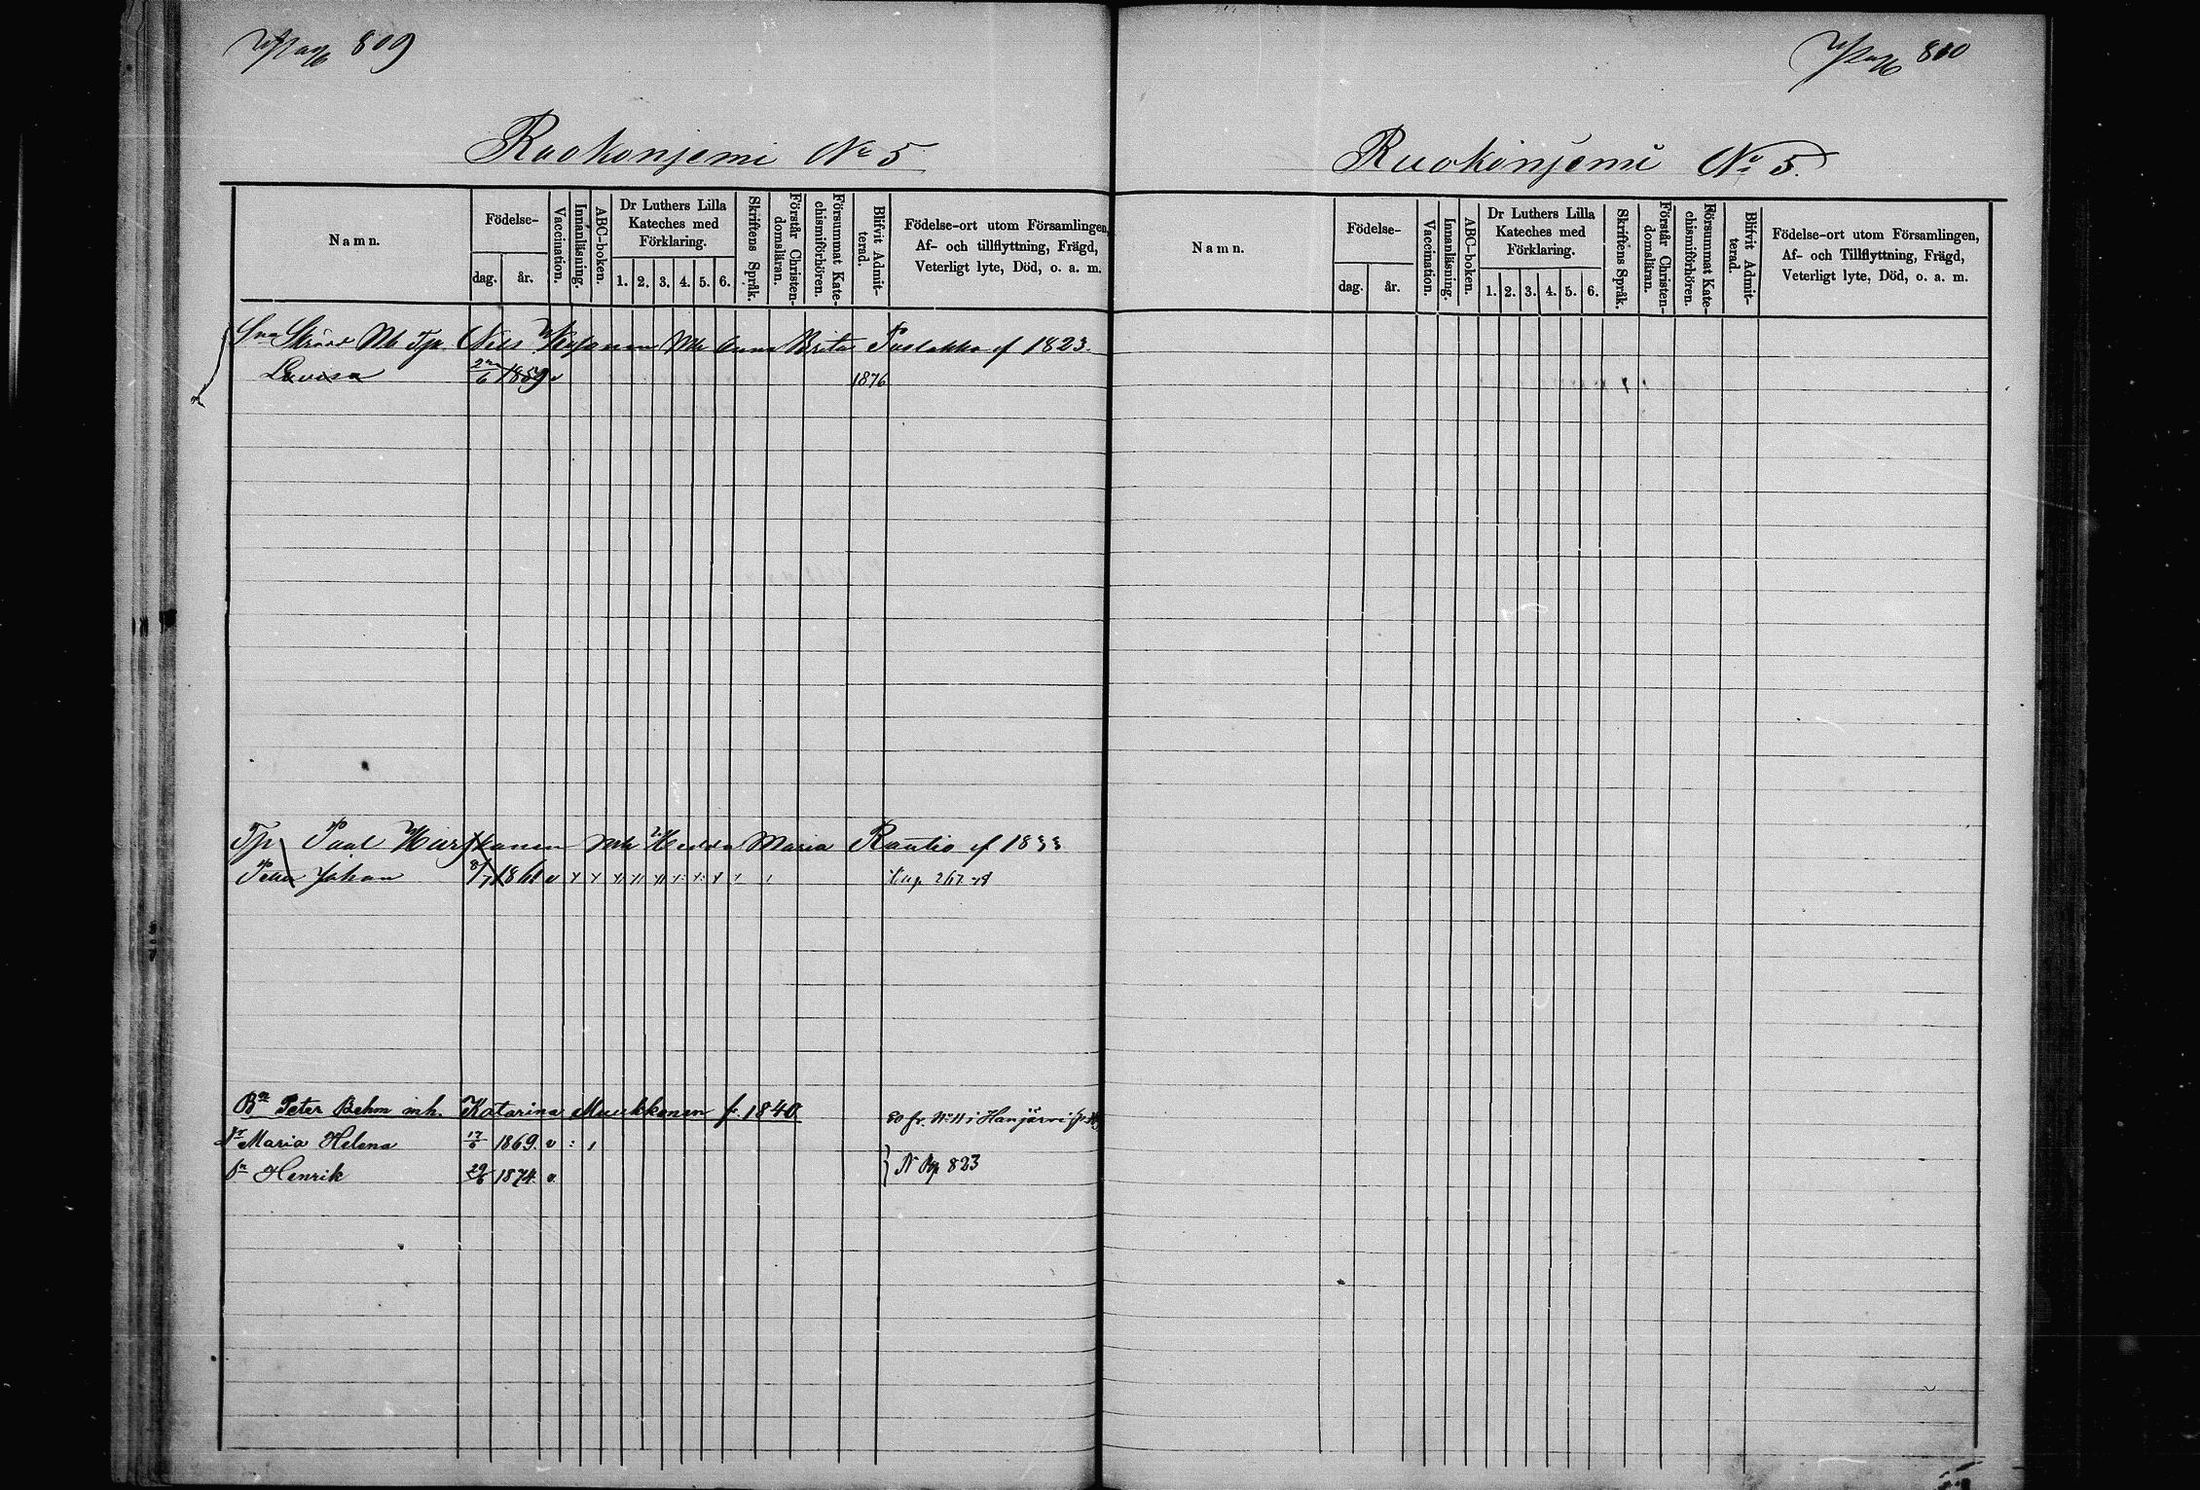 809
Ruokonjemi No 5
Namn.
Födelse-
dag.
år.
Vaccination.
Innanläsning.
ABC-boken.
Dr Luthers Lilla
Kateches med
Förklaring.
1. 2. 3. 4. 5. 6.
Skriftens Språk.
Förstår Christen-
domsläran.
Försummat Kate-
chismiförhören.
Blifvit Admit-
terad.
Födelse-ort utom Församlingen,
Af- och tillflyttning, Frägd,
Veterligt lyte, Död, o. a. m.
Nils Mh Anna Brita f 1823.
Lovisa 1859 v 1876
Tp Paul Mh Hedda Maria Rautio f 1833
Petter Johan 8/7 1861 v
Bn Peter Behm mh. Katarina Muukkonen f. 1840.
Dr Maria Helena 17/6 1869. v
Sn Henrik 29/6 1874. v
N Pag 823
800
Ruokonjemi No 5.
Namn.
Födelse-
dag.
år.
Vaccination.
Innanläsning.
ABC-boken.
Dr Luthers Lilla
Kateches med
Förklaring.
1. 2. 3. 4. 5. 6.
Skriftens Språk.
Förstår Christen-
domsläran.
Försummat Kate-
chismiförhören.
Blifvit Admit-
terad.
Födelse-ort utom Församlingen,
Af- och Tillflyttning, Frägd,
Veterligt lyte, Död, o. a. m.